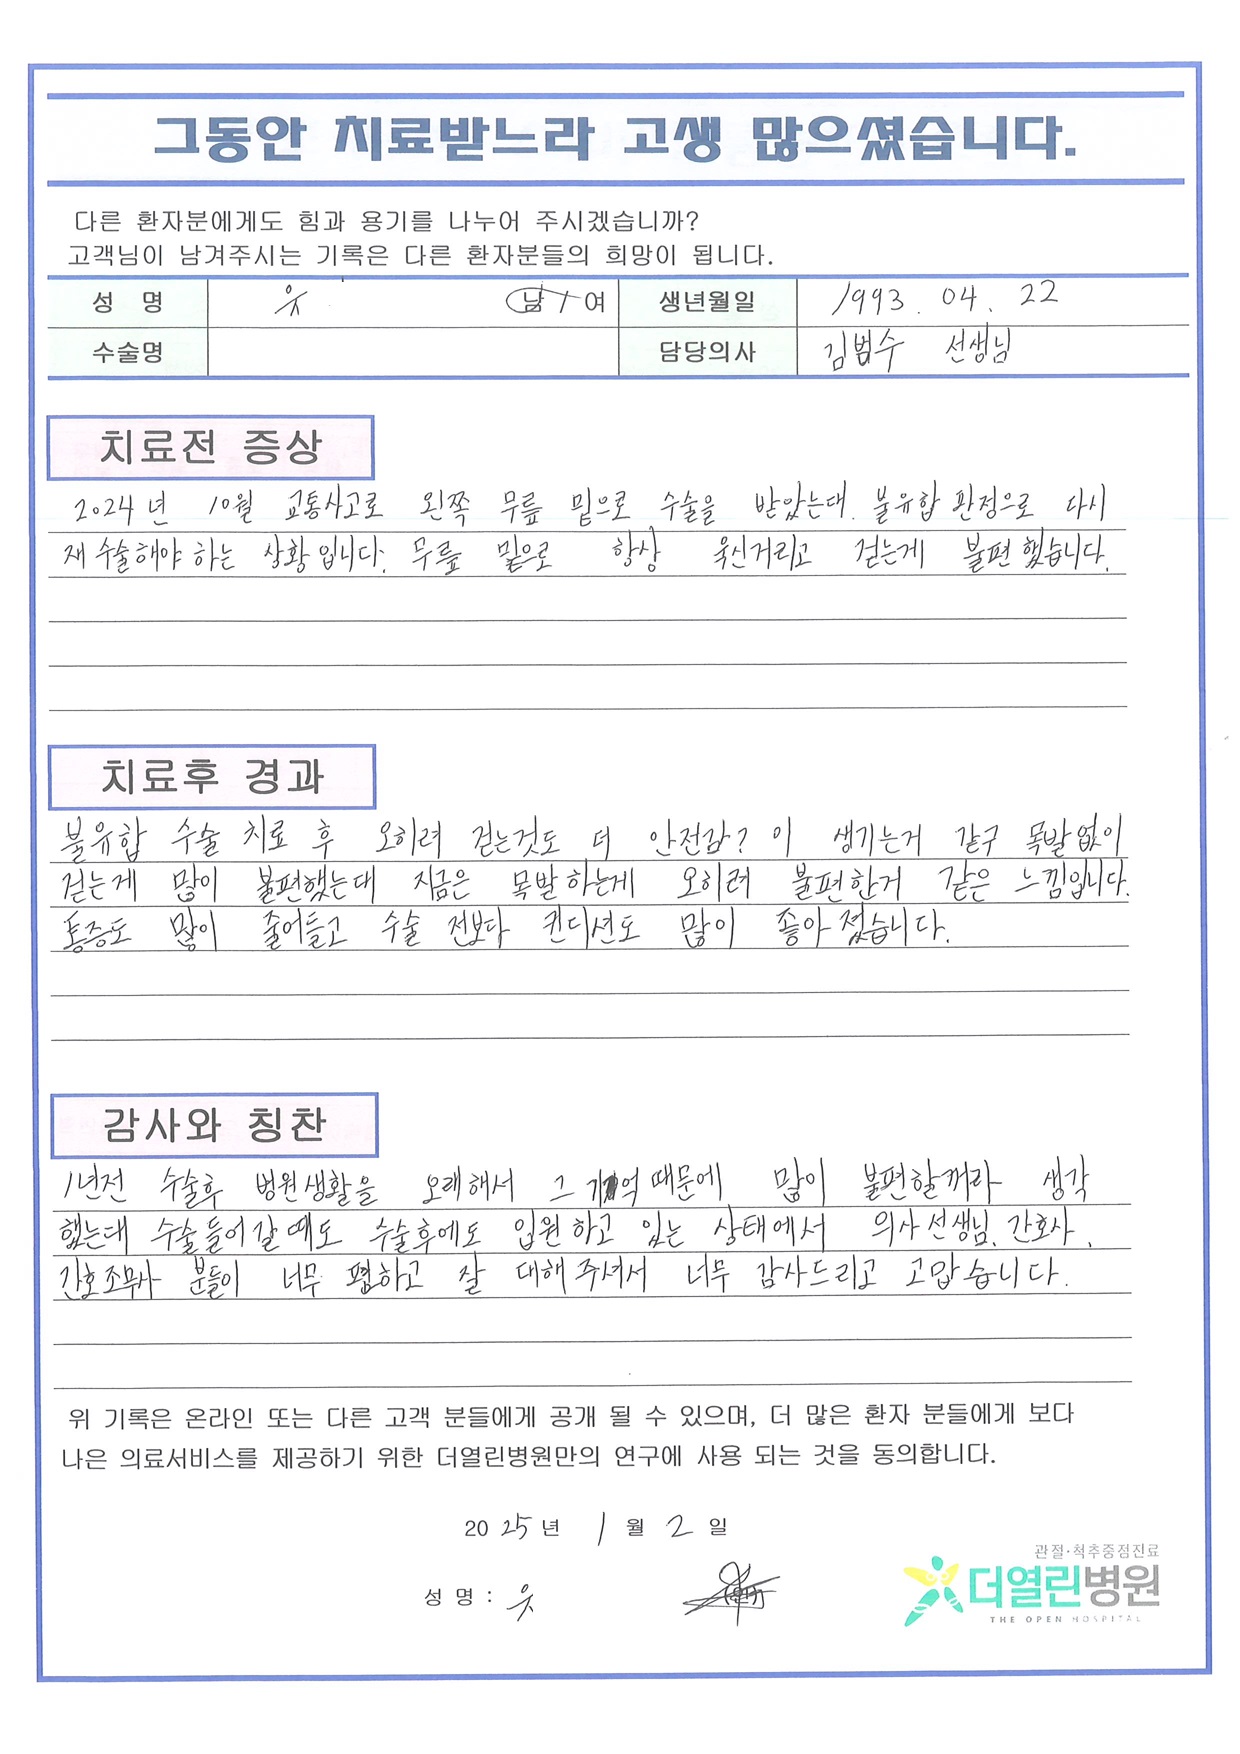 그동안 치료받느라 고생 많으셨습니다.
다른 환자분에게도 힘과 용기를 나누어 주시겠습니까?
고객님이 남겨주시는 기록은 다른 환자분들의 희망이 됩니다.
성 명 웃 남 / 여 생년월일 1993. 04. 22
수술명 담당의사 김범수 선생님
치료전 증상
2024년 10월 교통사고로 왼쪽 무릎 밑으로 수술을 받았는대 불유합 판정으로 다시
재 수술해야 하는 상황 입니다. 무릎 밑으로 항상 욱신거리고 걷는게 불편 했습니다.
치료후 경과
불유합 수술 치료 후 오히려 걷는것도 더 안전감? 이 생기는거 같구 목발없이
걷는게 많이 불편했는대 지금은 목발하는게 오히려 불편한거 같은 느낌입니다.
통증도 많이 줄어들고 수술 전보다 컨디션도 많이 좋아 졌습니다.
감사와 칭찬
1년전 수술후 병원생활을 오래해서 그 기억 때문에 많이 불편할꺼라 생각
했는대 수술들어갈때도 수술후에도 입원하고 있는 상태에서 의사선생님, 간호사,
간호조무사 분들이 너무 편하고 잘 대해주셔서 너무 감사드리고 고맙습니다.
위 기록은 온라인 또는 다른 고객 분들에게 공개 될 수 있으며, 더 많은 환자 분들에게 보다
나은 의료서비스를 제공하기 위한 더열린병원만의 연구에 사용 되는 것을 동의합니다.
2025년 1월 2일
관절·척추중점진료
성 명 : 웃
더열린병원
THE OPEN HOSPITAL